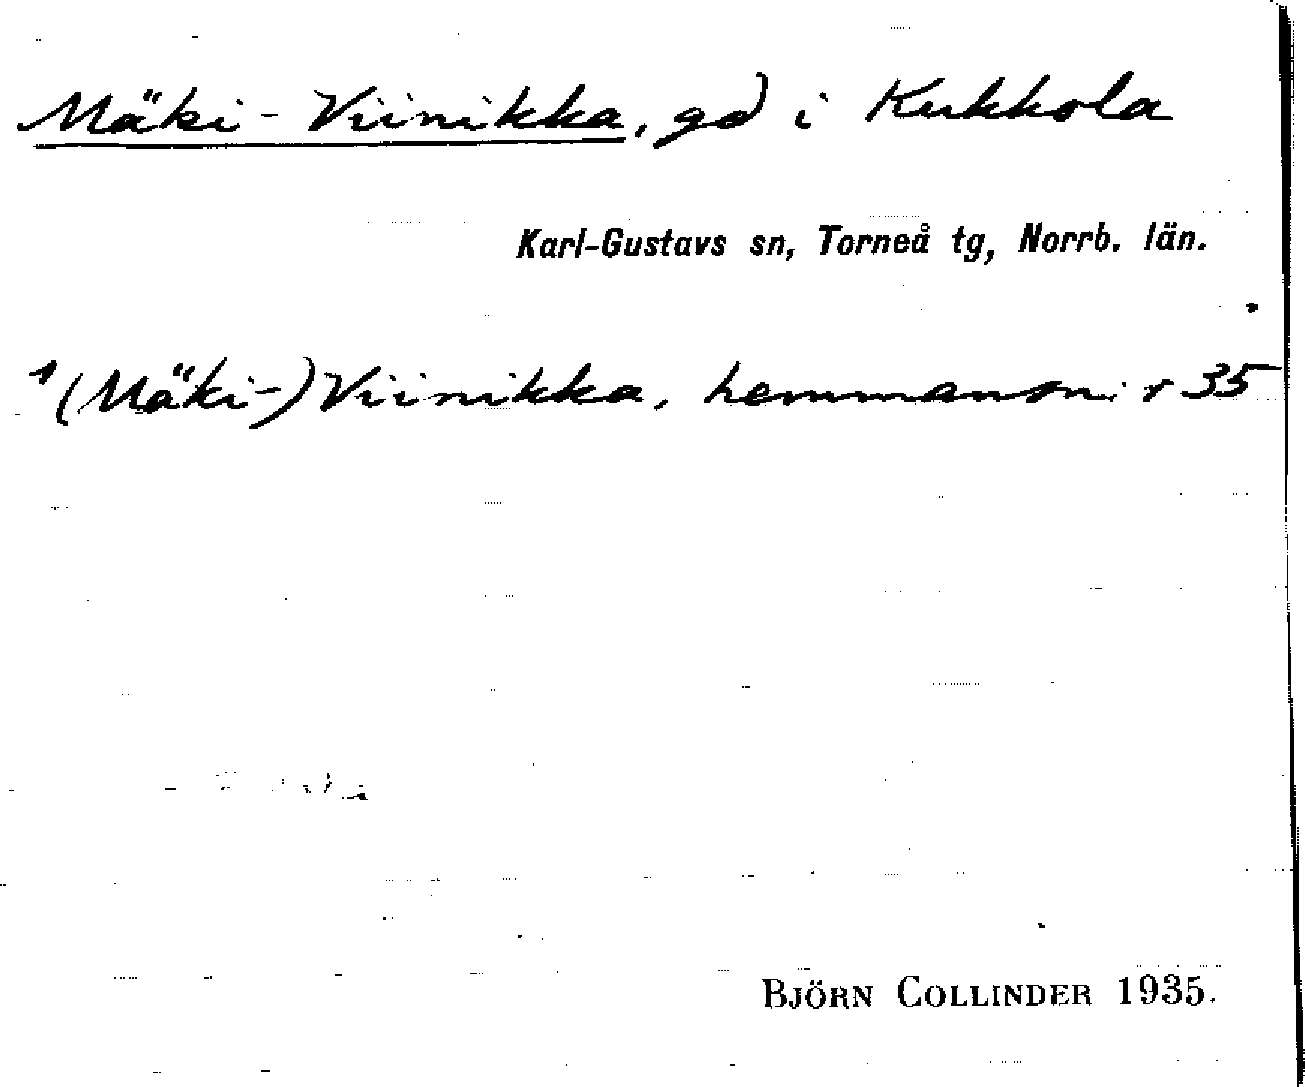 Mäki-Viinikka, gd i Kukkola
Karl-Gustavs sn, Torneå tg, Norrb. län.
1(Mäki-)Viinikka, hemmansn:r 35
BJÖRN COLLINDER 1935.